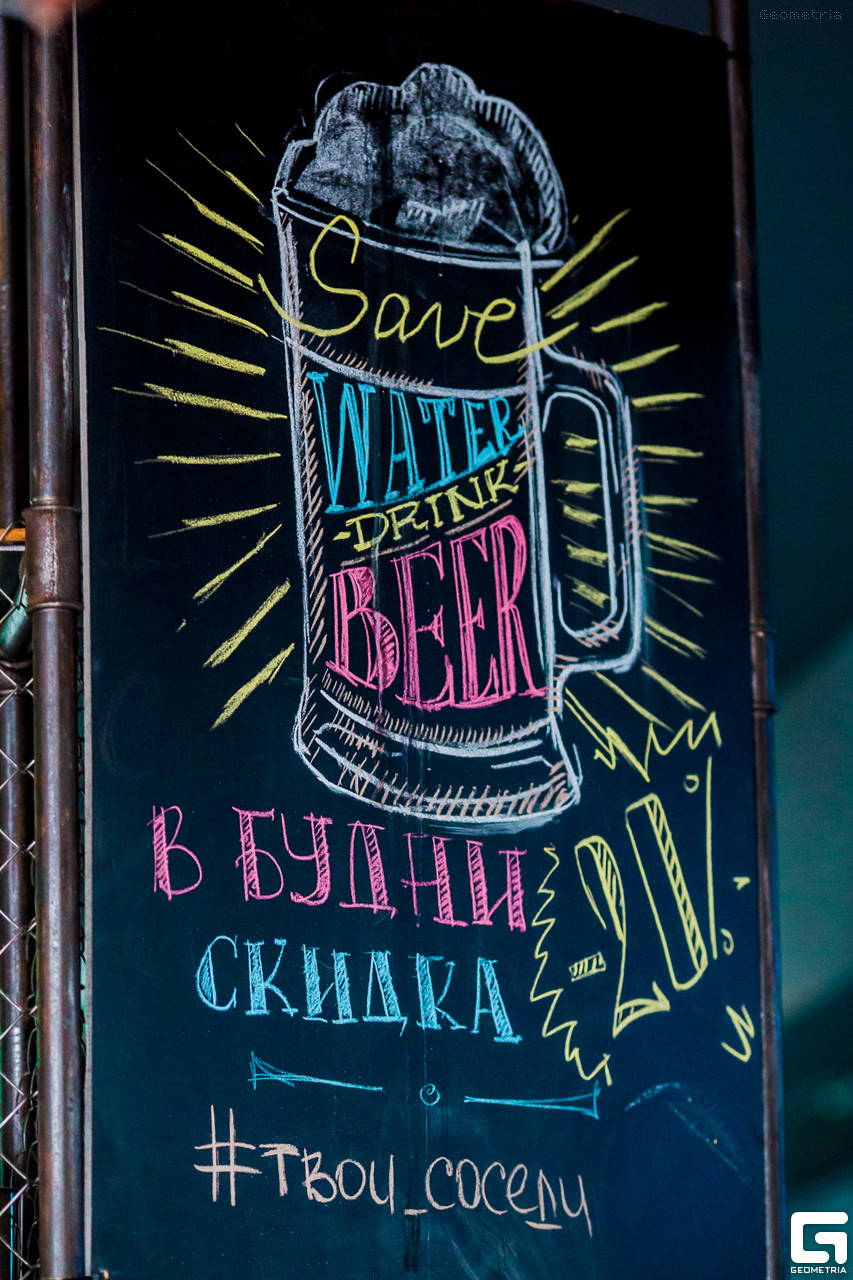 Geometria
Save
WATER
-DRINK-
BEER
В БУДНИ
СКИДКА
-20%
#твои_соседи
GEOMETRIA